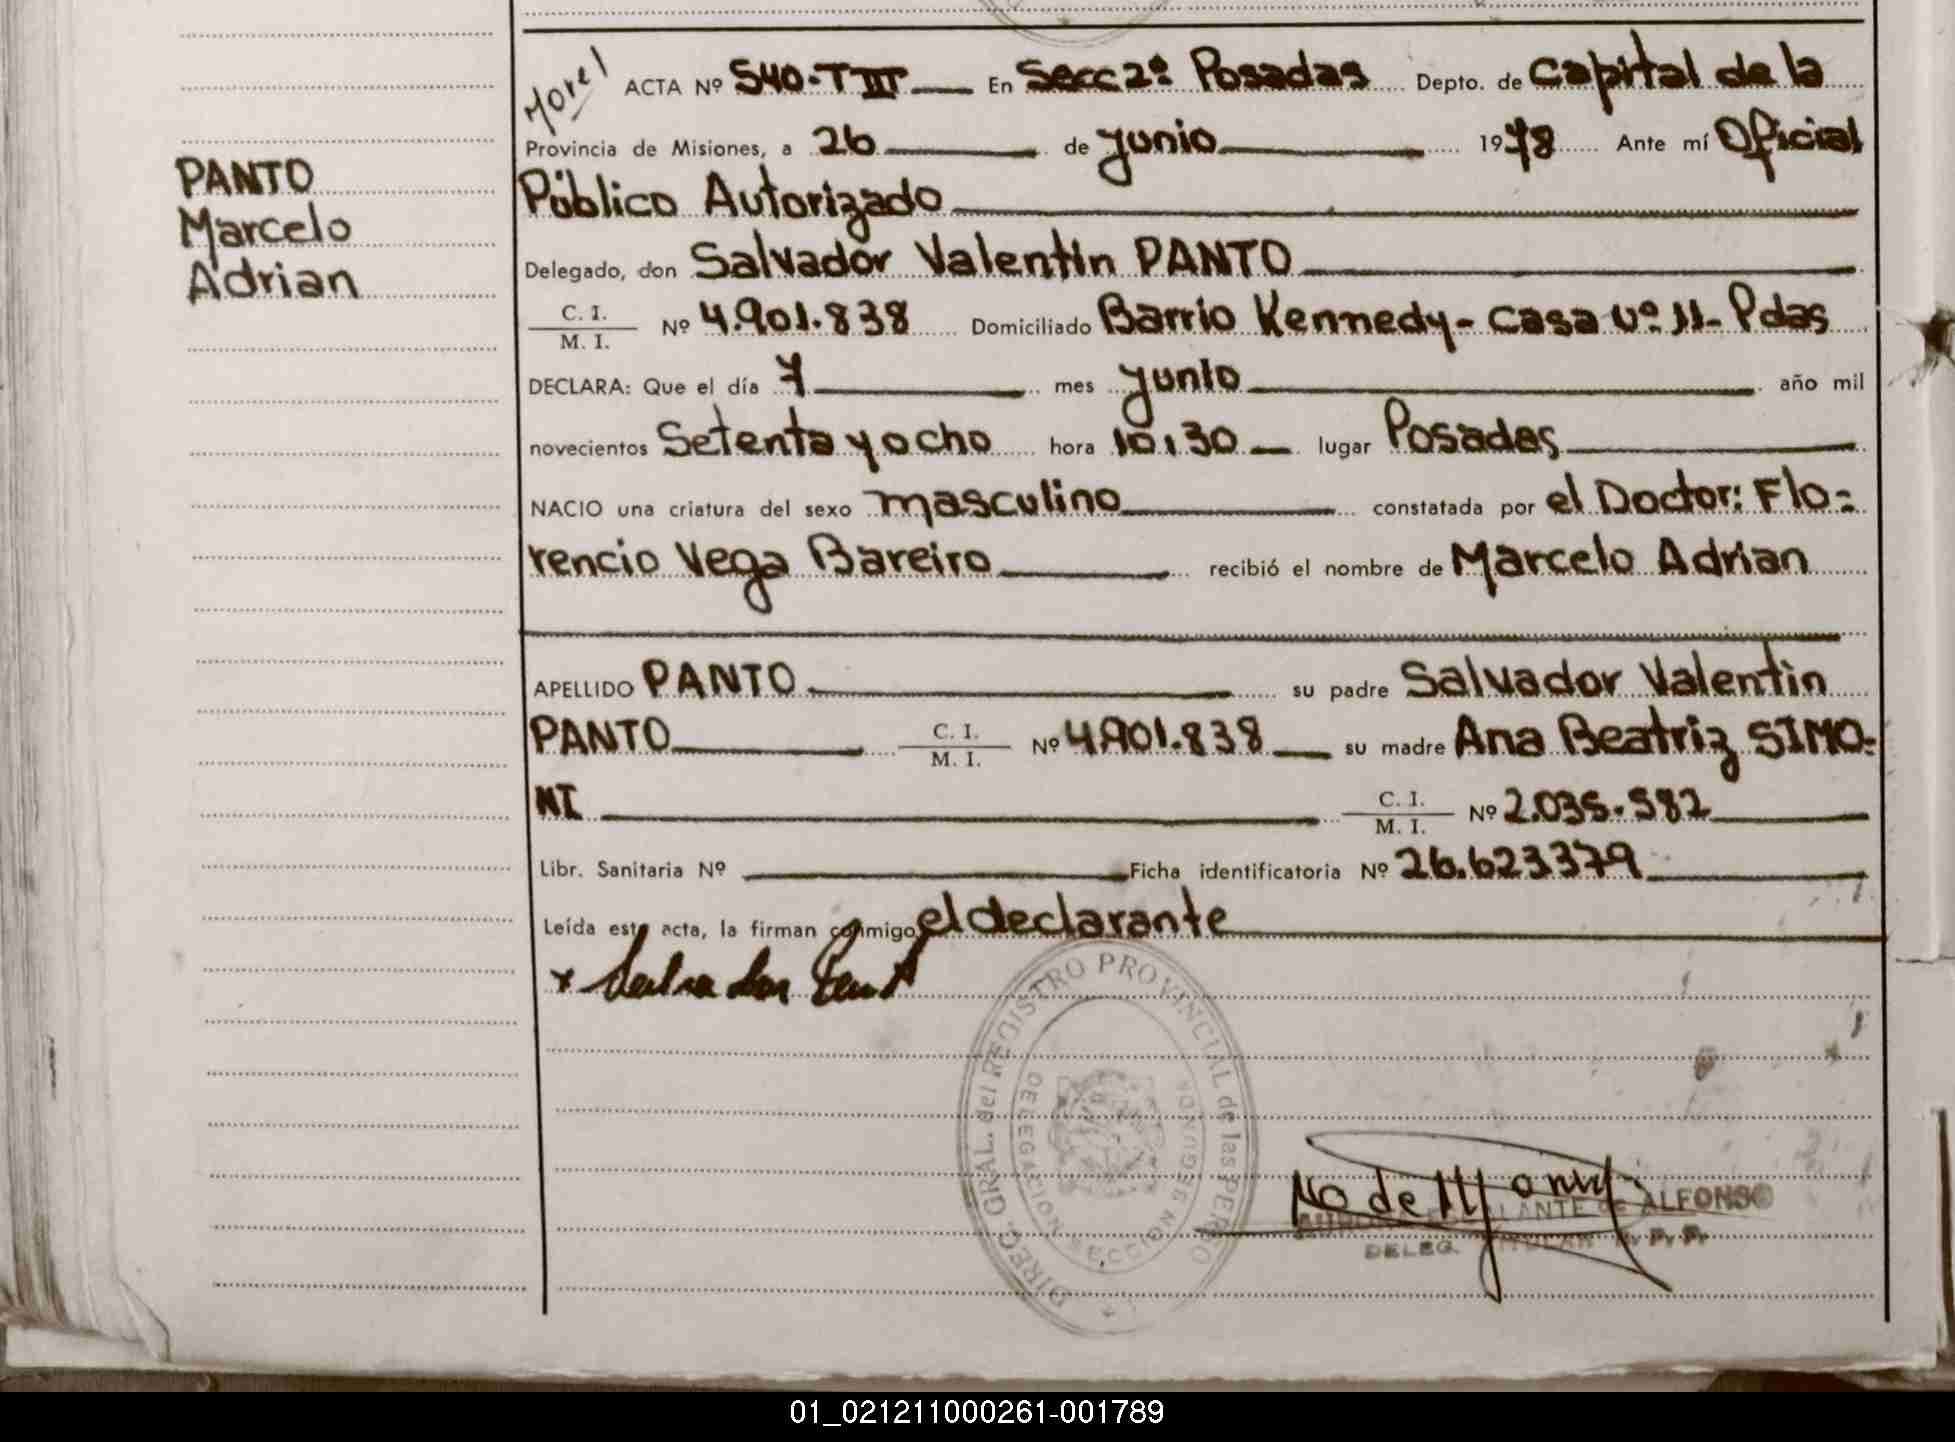 Morel
ACTA Nº 540-T III En Secc 2ª Posadas Depto. de Capital de la
Provincia de Misiones, a 26 de junio 1978 Ante mí Oficial
Público Autorizado
Delegado, don Salvador Valentin PANTO
C. I.
M. I. Nº 4.901.838 Domiciliado Barrio Kennedy - casa nº 11 - Pdas
DECLARA: Que el día 7 mes junio año mil
novecientos Setenta y ocho hora 10,30 lugar Posadas
NACIO una criatura del sexo masculino constatada por el Doctor: Flo-
rencio Vega Bareiro recibió el nombre de Marcelo Adrian
APELLIDO PANTO su padre Salvador Valentin
PANTO C. I. M. I. Nº 4.901.838 su madre Ana Beatriz SIMO-
NI C. I. M. I. Nº 2.035.582
Libr. Sanitaria Nº Ficha identificatoria Nº 26.623379
Leída esta acta, la firman conmigo el declarante
PANTO
Marcelo
Adrian
DIREC. GRAL. del REGISTRO PROVINCIAL de las PERSO
DELEGACION SECCION SEGUNDA
ESCALANTE de ALFONSO
DELEG. TITULAR R. P. P.
01_021211000261-001789